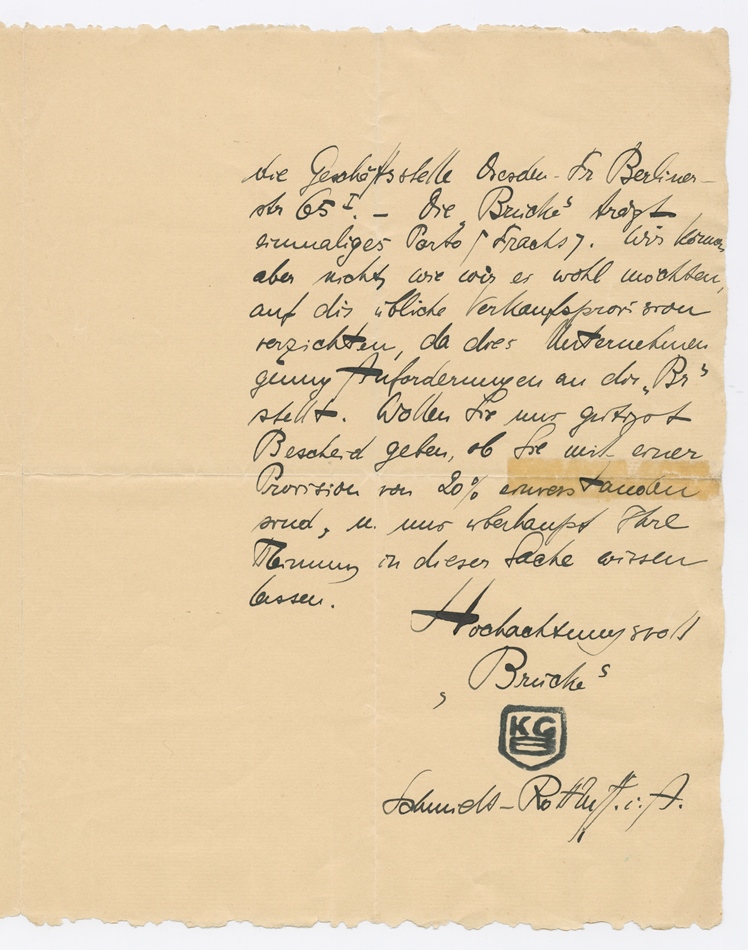 die Geschäftsstelle Dresden-Fr Berliner-
str 65 I. – Die „Brücke“ trägt
einmaliges Porto (Fracht). Wir können
aber nicht, wie wir es wohl möchten,
auf die übliche Verkaufsprovision
verzichten, da dies Unternehmen
genug Anforderungen an die „Br“
stellt. Wollen Sie uns gütigst
Bescheid geben, ob Sie mit einer
Provision von 20% einverstanden
sind, u. uns überhaupt Ihre
Meinung in dieser Sache wissen
lassen.
Hochachtungsvoll
„Brücke“
KG
Schmidt-Rottluff. i. A.